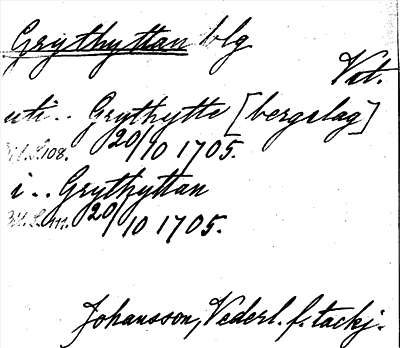 Grythyttan blg
Vst.
uti.. Grythytte [bergslag]
S. 108. 20/10 1705.
i.. Grythyttan
S. 111. 20/10 1705.
Johansson, Vederl. f. tackj.